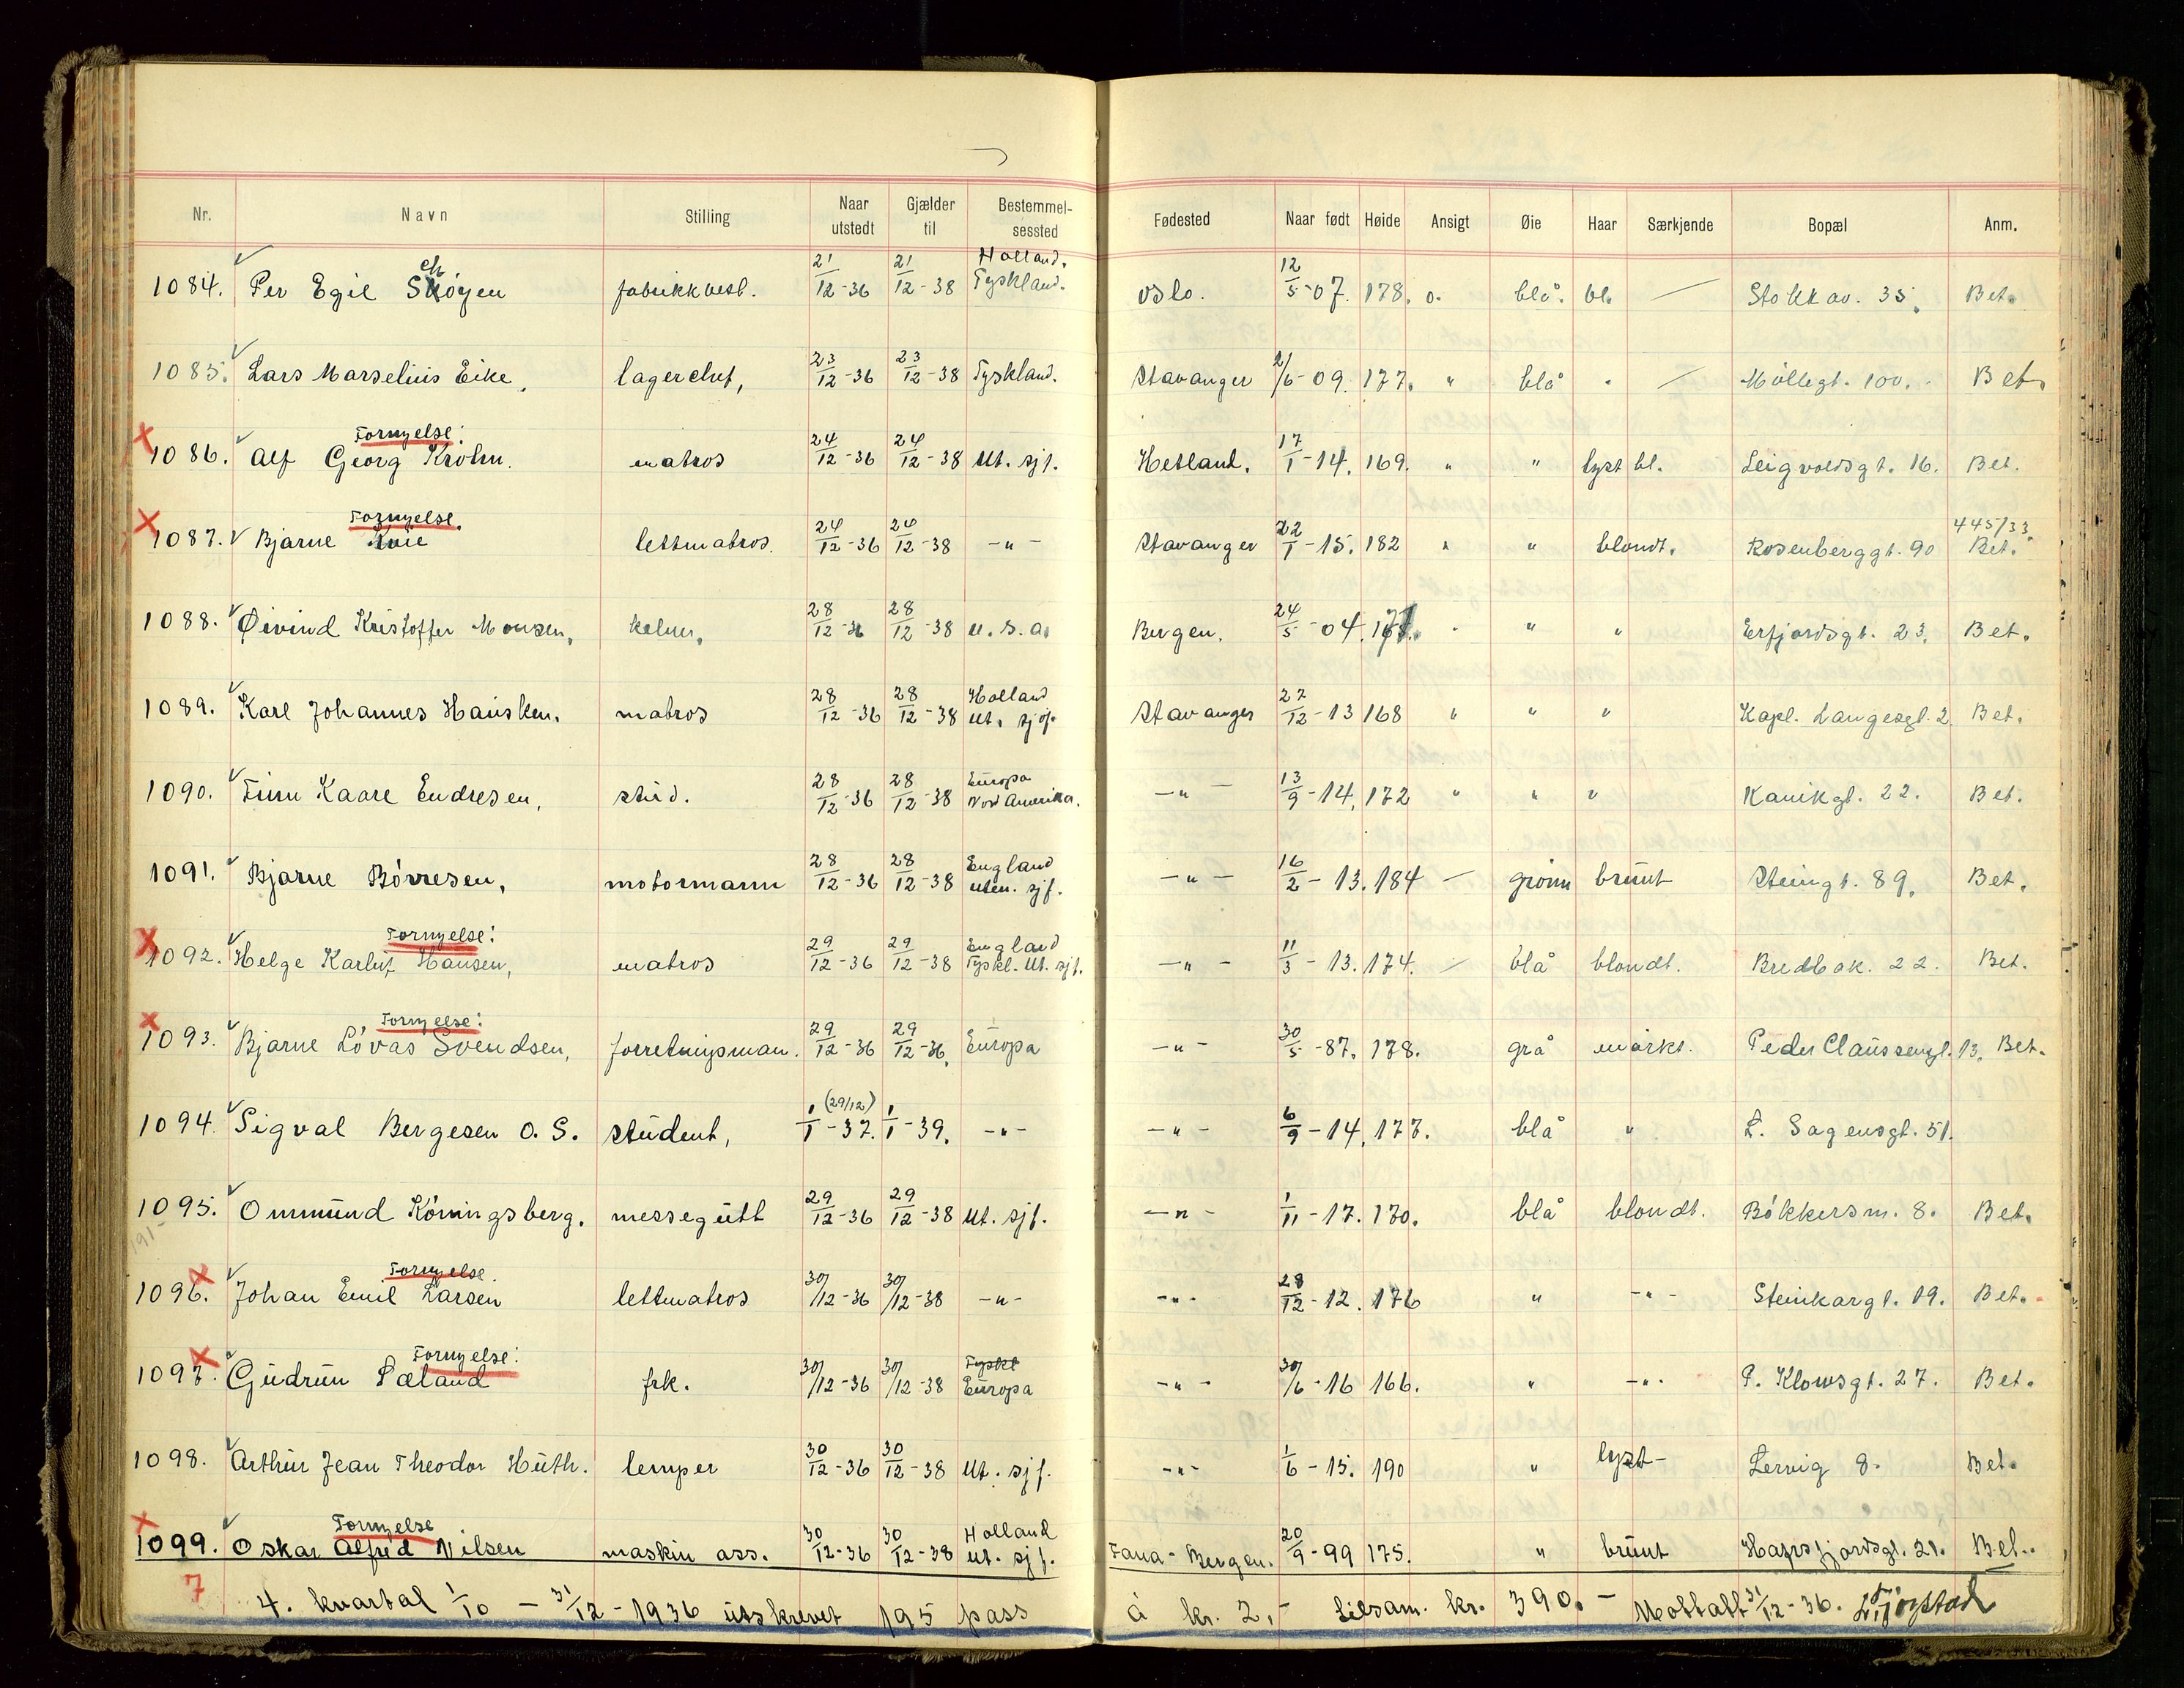 Nr. Navn Stilling Naar utstedt Gjælder til Bestemmelsessted Fødested Naar født Høide Ansigt Øie Haar Særkjende Bopæl Anm.
1084. Per Egil Schöyen fabrikkbest. 21/12-36 21/12-38 Holland. Tyskland. Oslo. 12/5-07. 178. o. blå. bl. — Stokkav. 35. Bet.
1085. Lars Marselius Eike, lagerchef, 23/12-36 23/12-38 Tyskland. Stavanger 2/6-09. 177. " blå " — Möllegt. 100. Bet.
Fornyelse:
1086. Alf Georg Krohn. matros 24/12-36 24/12-38 Ut. sjf. Hetland. 17/1-14. 169. " " lyst bl. 16. Bet.
Fornyelse.
1087. Bjarne Kvie lettmatros. 24/12-36 24/12-38 -"- Stavanger 22/1-15. 182 " " blondt. Rosenberggt. 90 445/33. Bet.
1088. Øivind Kristoffer Monsen, kelner, 28/12-36 28/12-38 U.S.A. Bergen. 24/5-04. " " " Erfjordsgt. 23. Bet.
1089. Karl Johannes Hausken. matros 28/12-36 28/12-38 Holland Ut. sjf. Stavanger 22/12-13 168 " " " Kapl. Langesgt. 2. Bet.
1090. Finn Kaare Endresen, stud. 28/12-36 28/12-38 Europa Nord Amerika. -"- 13/9-14. 172 " " " Kanikgt. 22. Bet.
1091. Bjarne Börresen, motormann 28/12-36 28/12-38 England uten. sjf. -"- 16/2-13. 184 — grönn brunt Steingt. 89. Bet.
Fornyelse:
1092. Helge Karluf Hansen, matros 29/12-36 29/12-38 England Tyskl. Ut. sjf. -"- 11/3-13. 174. — blå blondt. Bredbak. 22. Bet.
Fornyelse:
1093. Bjarne Lövås Svendsen, forretningsman. 29/12-36 29/12-36. Europa -"- 30/5-87. 178. grå mörkt. Peder Claussensgt. 13. Bet.
1094. Sigval Bergesen O. S. student, (29/12) 1/1-37. 1/1-39. -"- -"- 6/9-14. 177. blå " L. Sagensgt. 51.
1095. Ommund Köningsberg. messegutt 29/12-36 29/12-38 Ut. sjf. -"- 1/11-17. 170. blå blondt. Bökkersm. 8. Bet.
Fornyelse.
1096. Johan Emil Larsen lettmatros 30/12-36 30/12-38 -"- -"- 28/12-12. 176 " -"- Steinkargt. 19. Bet.
Fornyelse:
1097. Gudrun Pæland frk. 30/12-36 30/12-38 Tyskl Europa -"- 30/6-16 166. " -"- P. Klowsgt. 27. Bet.
1098. Arthur Jean Theodor Huth. lemper 30/12-36 30/12-38 Ut. sjf. -"- 1/6-15. 190 " lyst- Lervig 8. Bet.
Fornyelse
1099. Oskar Alfred Nilsen maskin ass. 30/12-36 30/12-38 Holland Ut. sjf. Fana-Bergen. 20/9-99 175. " brunt Hafrsfjordsgt. 21. Bet.
7 4. kvartal 1/10 - 31/12-1936 utskrevet 195 pass à kr. 2,- tilsam. kr. 390.- Mottatt 31/12-36.